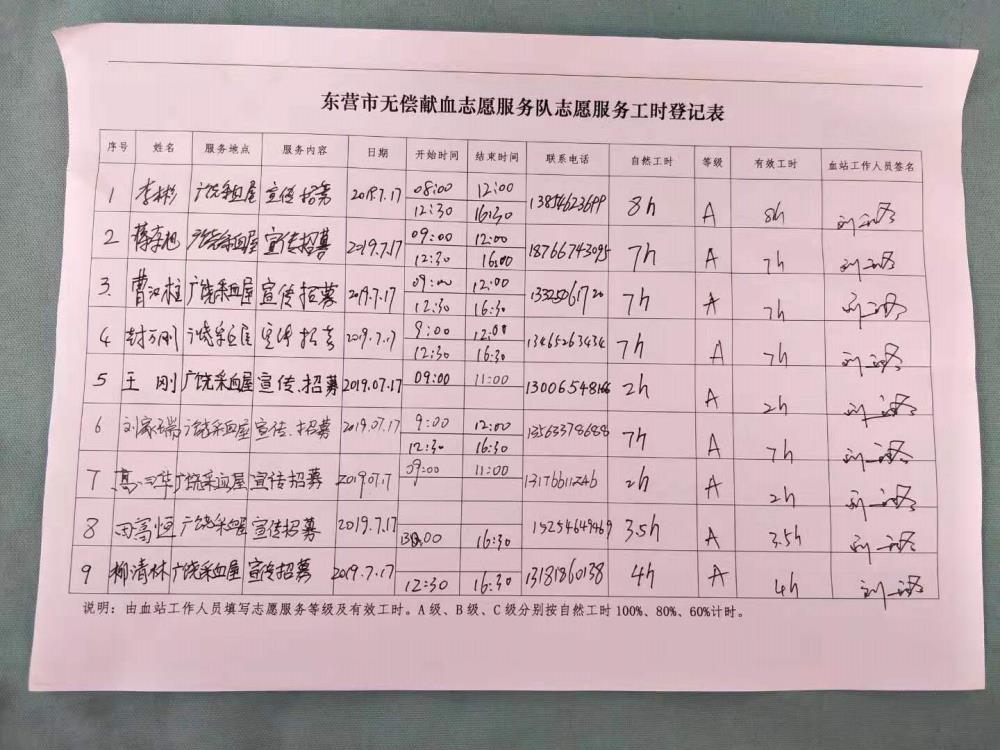 东营市无偿献血志愿服务队志愿服务工时登记表
序号 姓名 服务地点 服务内容 日期 开始时间 结束时间 联系电话 自然工时 等级 有效工时 血站工作人员签名
1 李彬 广饶采血屋 宣传招募 2019.7.17 08:00 12:00 13854623699 8h A 8h
12:30 16:30
2 广饶采血屋 宣传招募 2019.7.17 09:00 12:00 18766743095 7h A 7h
12:30 16:00
3. 曹汉柱 广饶采血屋 宣传招募 2019.7.17 09:00 12:00 13325061720 7h A 7h
12:30 16:30
4 封万刚 广饶采血屋 宣传招募 2019.7.17 9:00 12:00 13465263434 7h A 7h
12:30 16:30
5 王刚 广饶采血屋 宣传、招募 2019.07.17 09:00 11:00 13006548166 2h A 2h
6 刘家瑞 广饶采血屋 宣传、招募 2019.07.17 9:00 12:00 13563378688 7h A 7h
12:30 16:30
7 广饶采血屋 宣传招募 2019.07.17 09:00 11:00 13176611246 2h A 2h
8 田富恒 广饶采血屋 宣传招募 2019.7.17 15254649469 3.5h A 3.5h
16:30
9 柳清林 广饶采血屋 宣传招募 2019.7.17 13181860138 4h A 4h
12:30 16:30
说明：由血站工作人员填写志愿服务等级及有效工时。A级、B级、C级分别按自然工时100%、80%、60%计时。